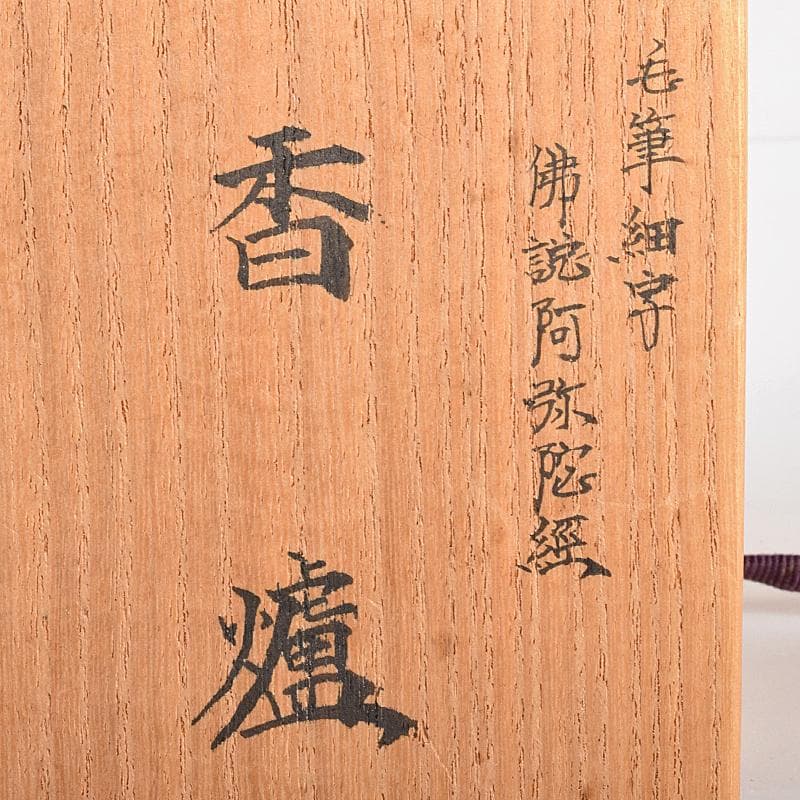 毛筆細字
佛説阿弥陀經
香爐